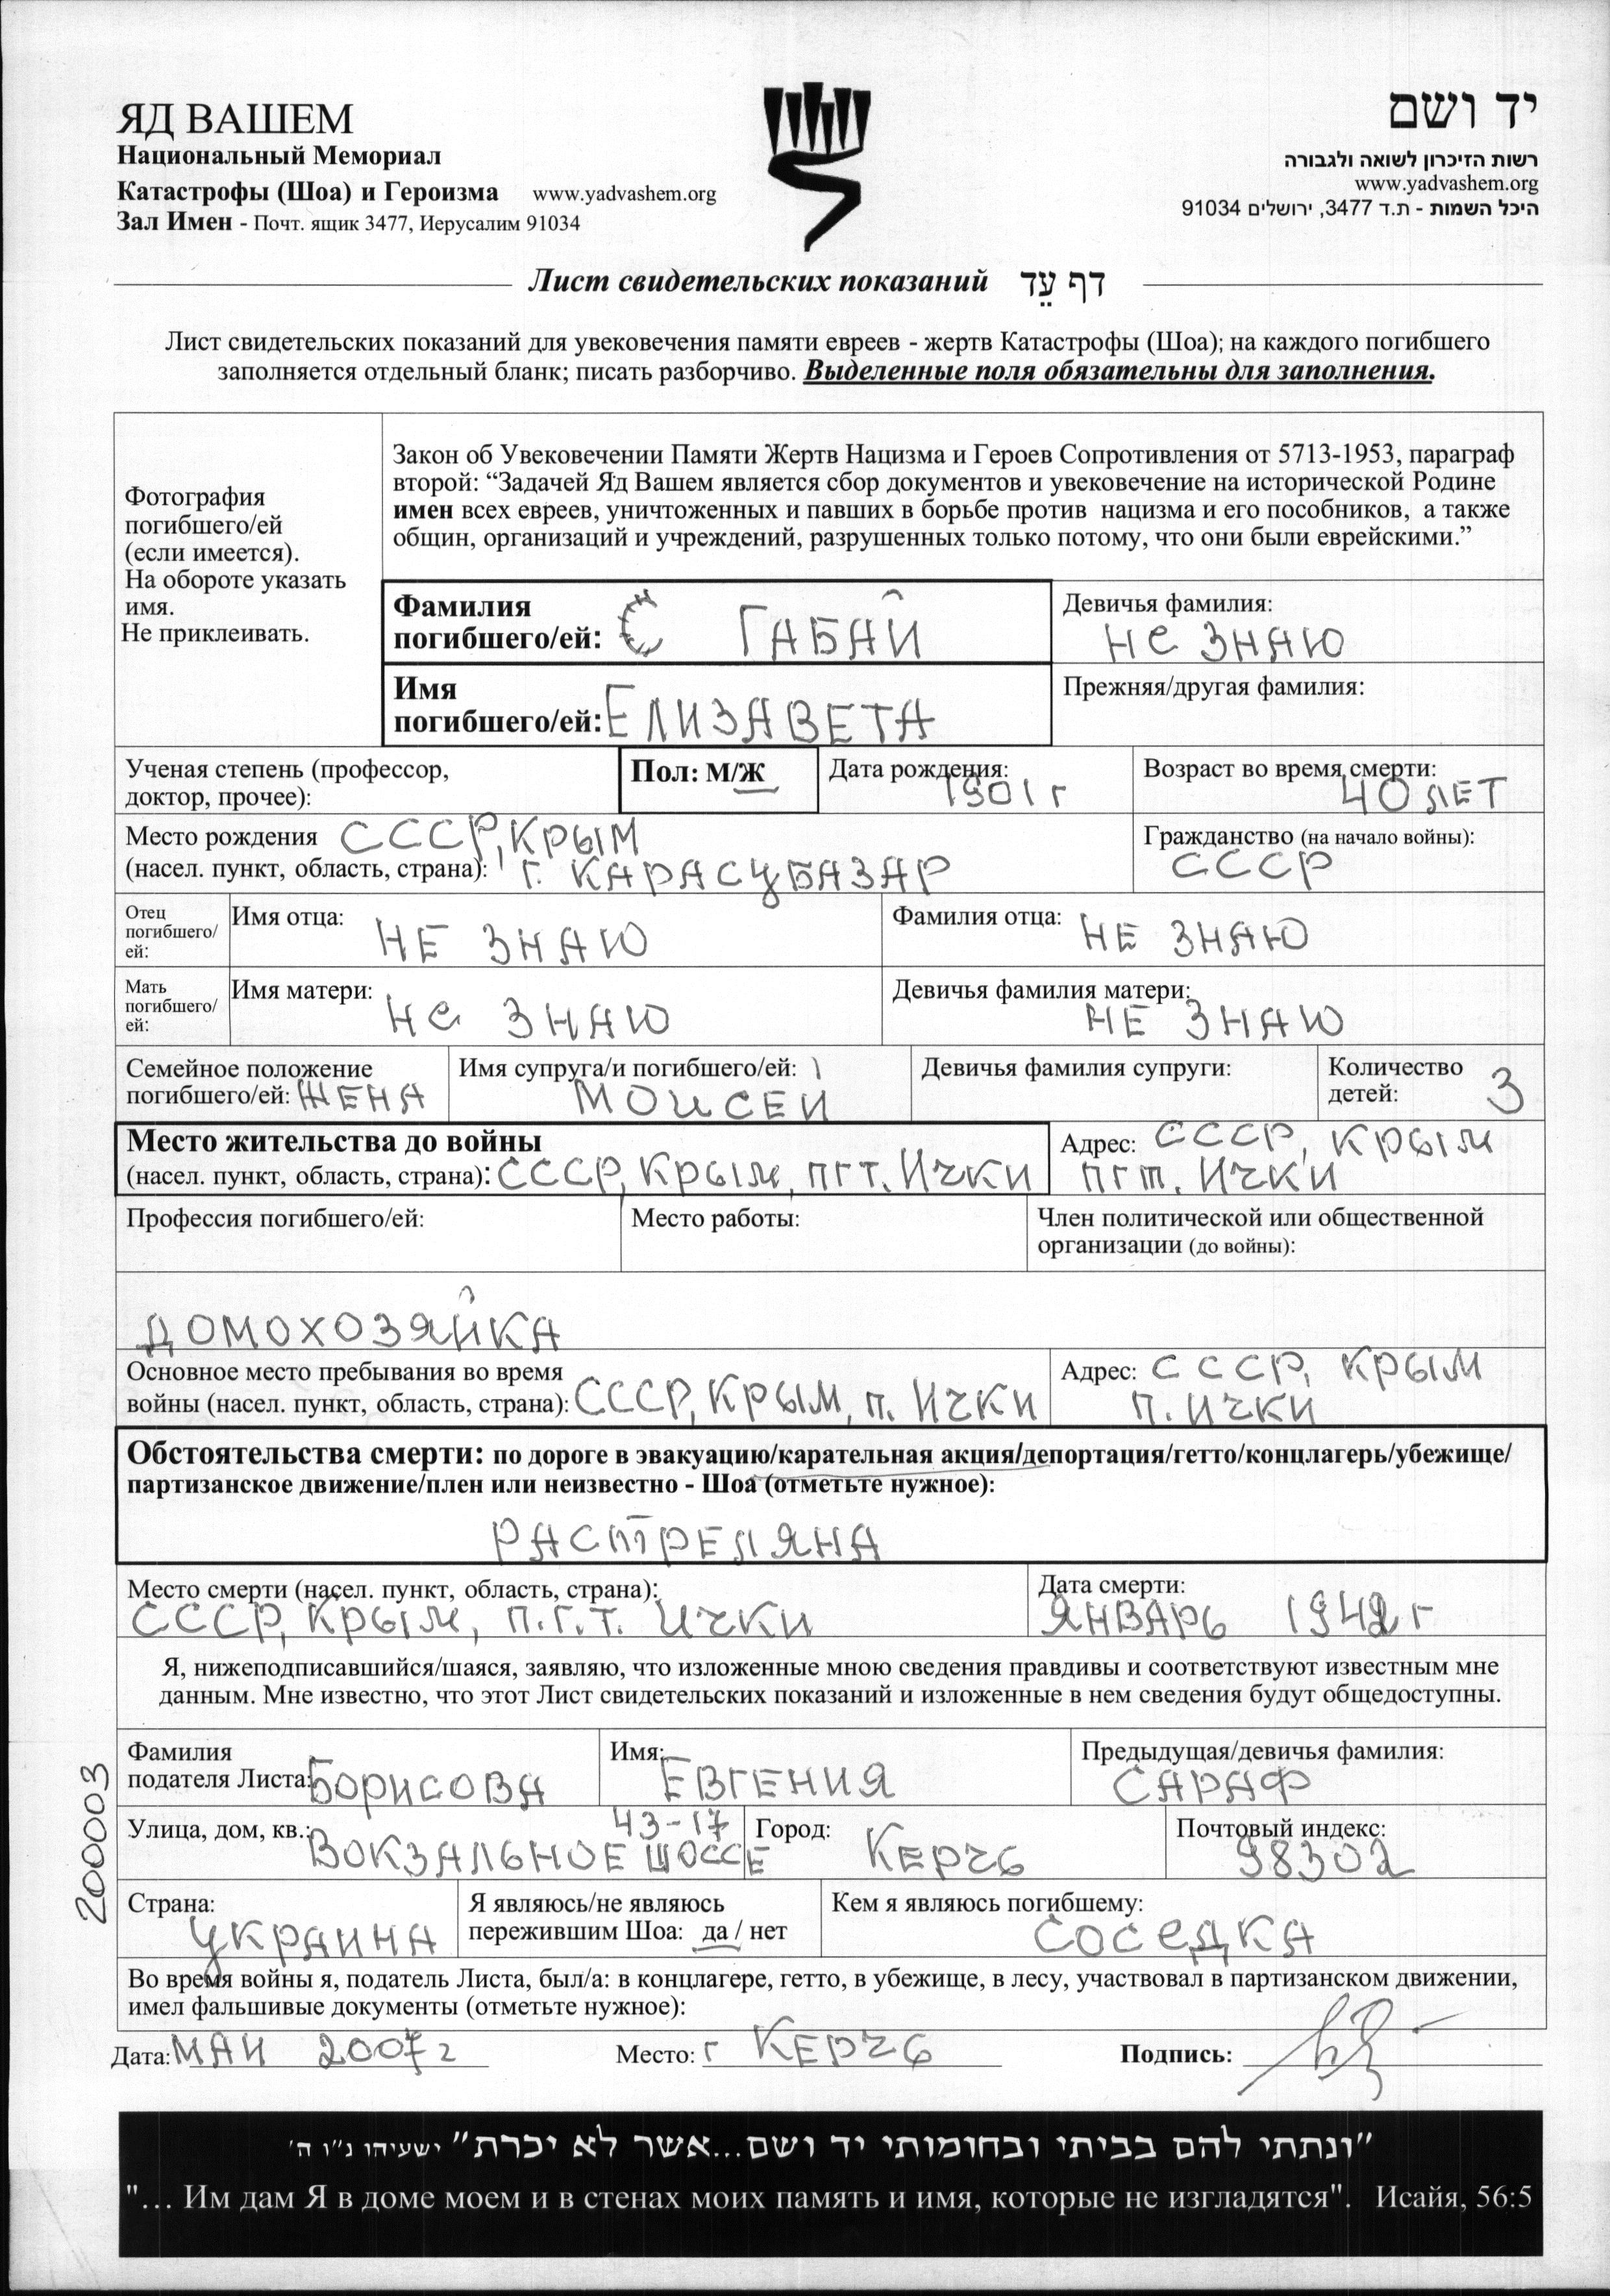 ЯД ВАШЕМ
Национальный Мемориал
Катастрофы (Шоа) и Героизма www.yadvashem.org
Зал Имен - Почт. ящик 3477, Иерусалим 91034
יד ושם
רשות הזיכרון לשואה ולגבורה
www.yadvashem.org
היכל השמות - ת.ד 3477, ירושלים 91034
Лист свидетельских показаний דף עֵד
Лист свидетельских показаний для увековечения памяти евреев - жертв Катастрофы (Шоа); на каждого погибшего
заполняется отдельный бланк; писать разборчиво. Выделенные поля обязательны для заполнения.
Фотография
погибшего/ей
(если имеется).
На обороте указать
имя.
Не приклеивать.
Закон об Увековечении Памяти Жертв Нацизма и Героев Сопротивления от 5713-1953, параграф
второй: “Задачей Яд Вашем является сбор документов и увековечение на исторической Родине
имен всех евреев, уничтоженных и павших в борьбе против нацизма и его пособников, а также
общин, организаций и учреждений, разрушенных только потому, что они были еврейскими.”
Фамилия
погибшего/ей: ГАБАЙ
Девичья фамилия:
Не ЗНАЮ
Имя
погибшего/ей: ЕЛИЗАВЕТА
Прежняя/другая фамилия:
Ученая степень (профессор,
доктор, прочее):
Пол: М/Ж
Дата рождения:
1901 г
Возраст во время смерти:
40 ЛЕТ
Место рождения СССР, КРЫМ
(насел. пункт, область, страна): г. КАРАСУБАЗАР
Гражданство (на начало войны):
СССР
Отец
погибшего/
ей:
Имя отца:
НЕ ЗНАЮ
Фамилия отца:
НЕ ЗНАЮ
Мать
погибшего/
ей:
Имя матери:
Не ЗНАЮ
Девичья фамилия матери:
НЕ ЗНАЮ
Семейное положение
погибшего/ей: ЖЕНА
Имя супруга/и погибшего/ей:
МОИСЕИ
Девичья фамилия супруги:
Количество
детей: 3
Место жительства до войны
(насел. пункт, область, страна): СССР, КРЫМ, пгт. ИЧКИ
Адрес: СССР, КРЫМ
пгт. ИЧКИ
Профессия погибшего/ей:
Место работы:
Член политической или общественной
организации (до войны):
ДОМОХОЗЯЙКА
Основное место пребывания во время
войны (насел. пункт, область, страна): СССР, КРЫМ, п. ИЧКИ
Адрес: СССР, КРЫМ
п. ИЧКИ
Обстоятельства смерти: по дороге в эвакуацию/карательная акция/депортация/гетто/концлагерь/убежище/
партизанское движение/плен или неизвестно - Шоа (отметьте нужное):
РАСТРЕЛЯНА
Место смерти (насел. пункт, область, страна):
СССР, КРЫМ, п.г.т. ИЧКИ
Дата смерти:
ЯНВАРЬ 1942 г
Я, нижеподписавшийся/шаяся, заявляю, что изложенные мною сведения правдивы и соответствуют известным мне
данным. Мне известно, что этот Лист свидетельских показаний и изложенные в нем сведения будут общедоступны.
Фамилия
подателя Листа: БОРИСОВА
Имя:
ЕВГЕНИЯ
Предыдущая/девичья фамилия:
САРАФ
Улица, дом, кв.: 43-17
ВОКЗАЛЬНОЕ ШОССЕ
Город: КЕРЧЬ
Почтовый индекс:
98302
Страна:
УКРАИНА
Я являюсь/не являюсь
пережившим Шоа: да / нет
Кем я являюсь погибшему:
СОСЕДКА
Во время войны я, податель Листа, был/а: в концлагере, гетто, в убежище, в лесу, участвовал в партизанском движении,
имел фальшивые документы (отметьте нужное):
Дата: МАИ 2007 г
Место: г КЕРЧЬ
Подпись:
200003
"ונתתי להם בביתי ובחומותי יד ושם...אשר לא יכרת" ישעיהו נ"ו ה'
"... Им дам Я в доме моем и в стенах моих память и имя, которые не изгладятся". Исайя, 56:5